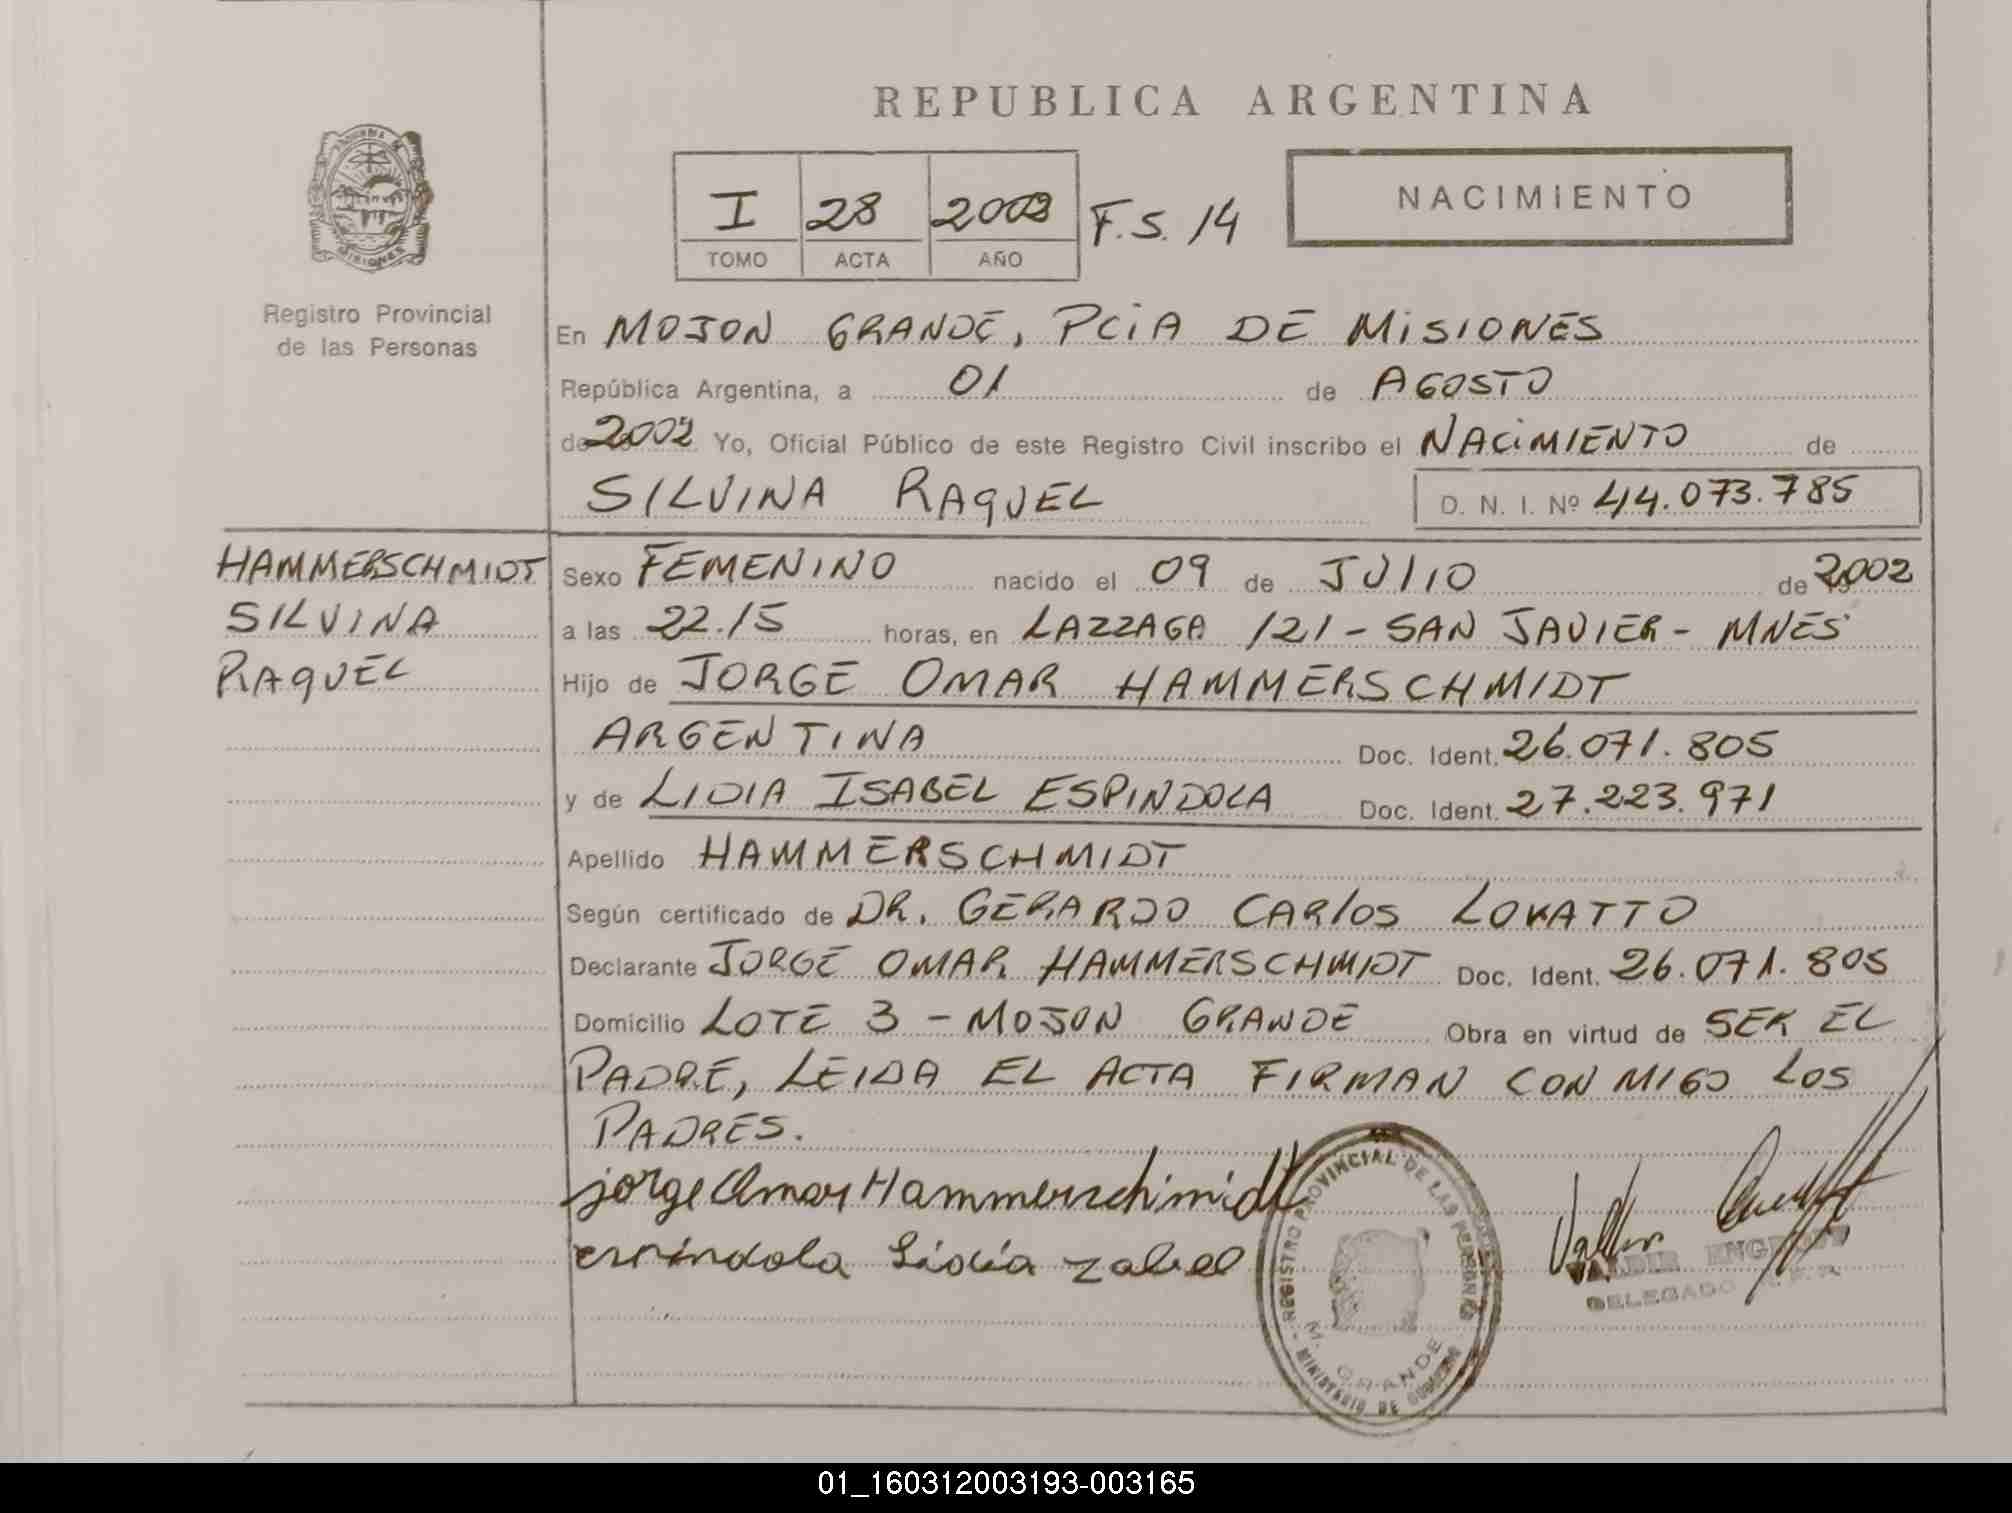 REPUBLICA ARGENTINA
NACIMIENTO
I 28 2002 F.S. 14
TOMO ACTA AÑO
MISIONES
Registro Provincial
de las Personas
En MOJON GRANDE, PCiA DE MiSIONES
República Argentina, a 01 de AGOSTO
de 2002 Yo, Oficial Público de este Registro Civil inscribo el NACiMIENTO de
SILVINA RAQUEL D. N. I. Nº 44.073.785
HAMMERSCHMIDT
SILVINA
RAQUEL
Sexo FEMENINO nacido el 09 de JULIO de 2002
a las 22.15 horas, en LAZZAGA 121 - SAN JAVIER - MNES
Hijo de JORGE OMAR HAMMERSCHMIDT
ARGENTINA Doc. Ident. 26.071.805
y de LIDIA ISABEL ESPINDOLA Doc. Ident. 27.223.971
Apellido HAMMERSCHMIDT
Según certificado de DR. GERARDO CARlOS LOVATTO
Declarante JORGE OMAR HAMMERSCHMIDT Doc. Ident. 26.071.805
Domicilio LOTE 3 - MOJON GRANDE Obra en virtud de SER EL
PADRE, LEIDA EL ACTA FIRMAN CONMIGO LOS
PADRES.
jorge Omar Hammerschimidt
espindola Lidia Zabel
REGISTRO PROVINCIAL DE LAS PERSONAS
M. GRANDE
MINISTERIO DE GOBIERNO
DELEGADO
01_160312003193-003165